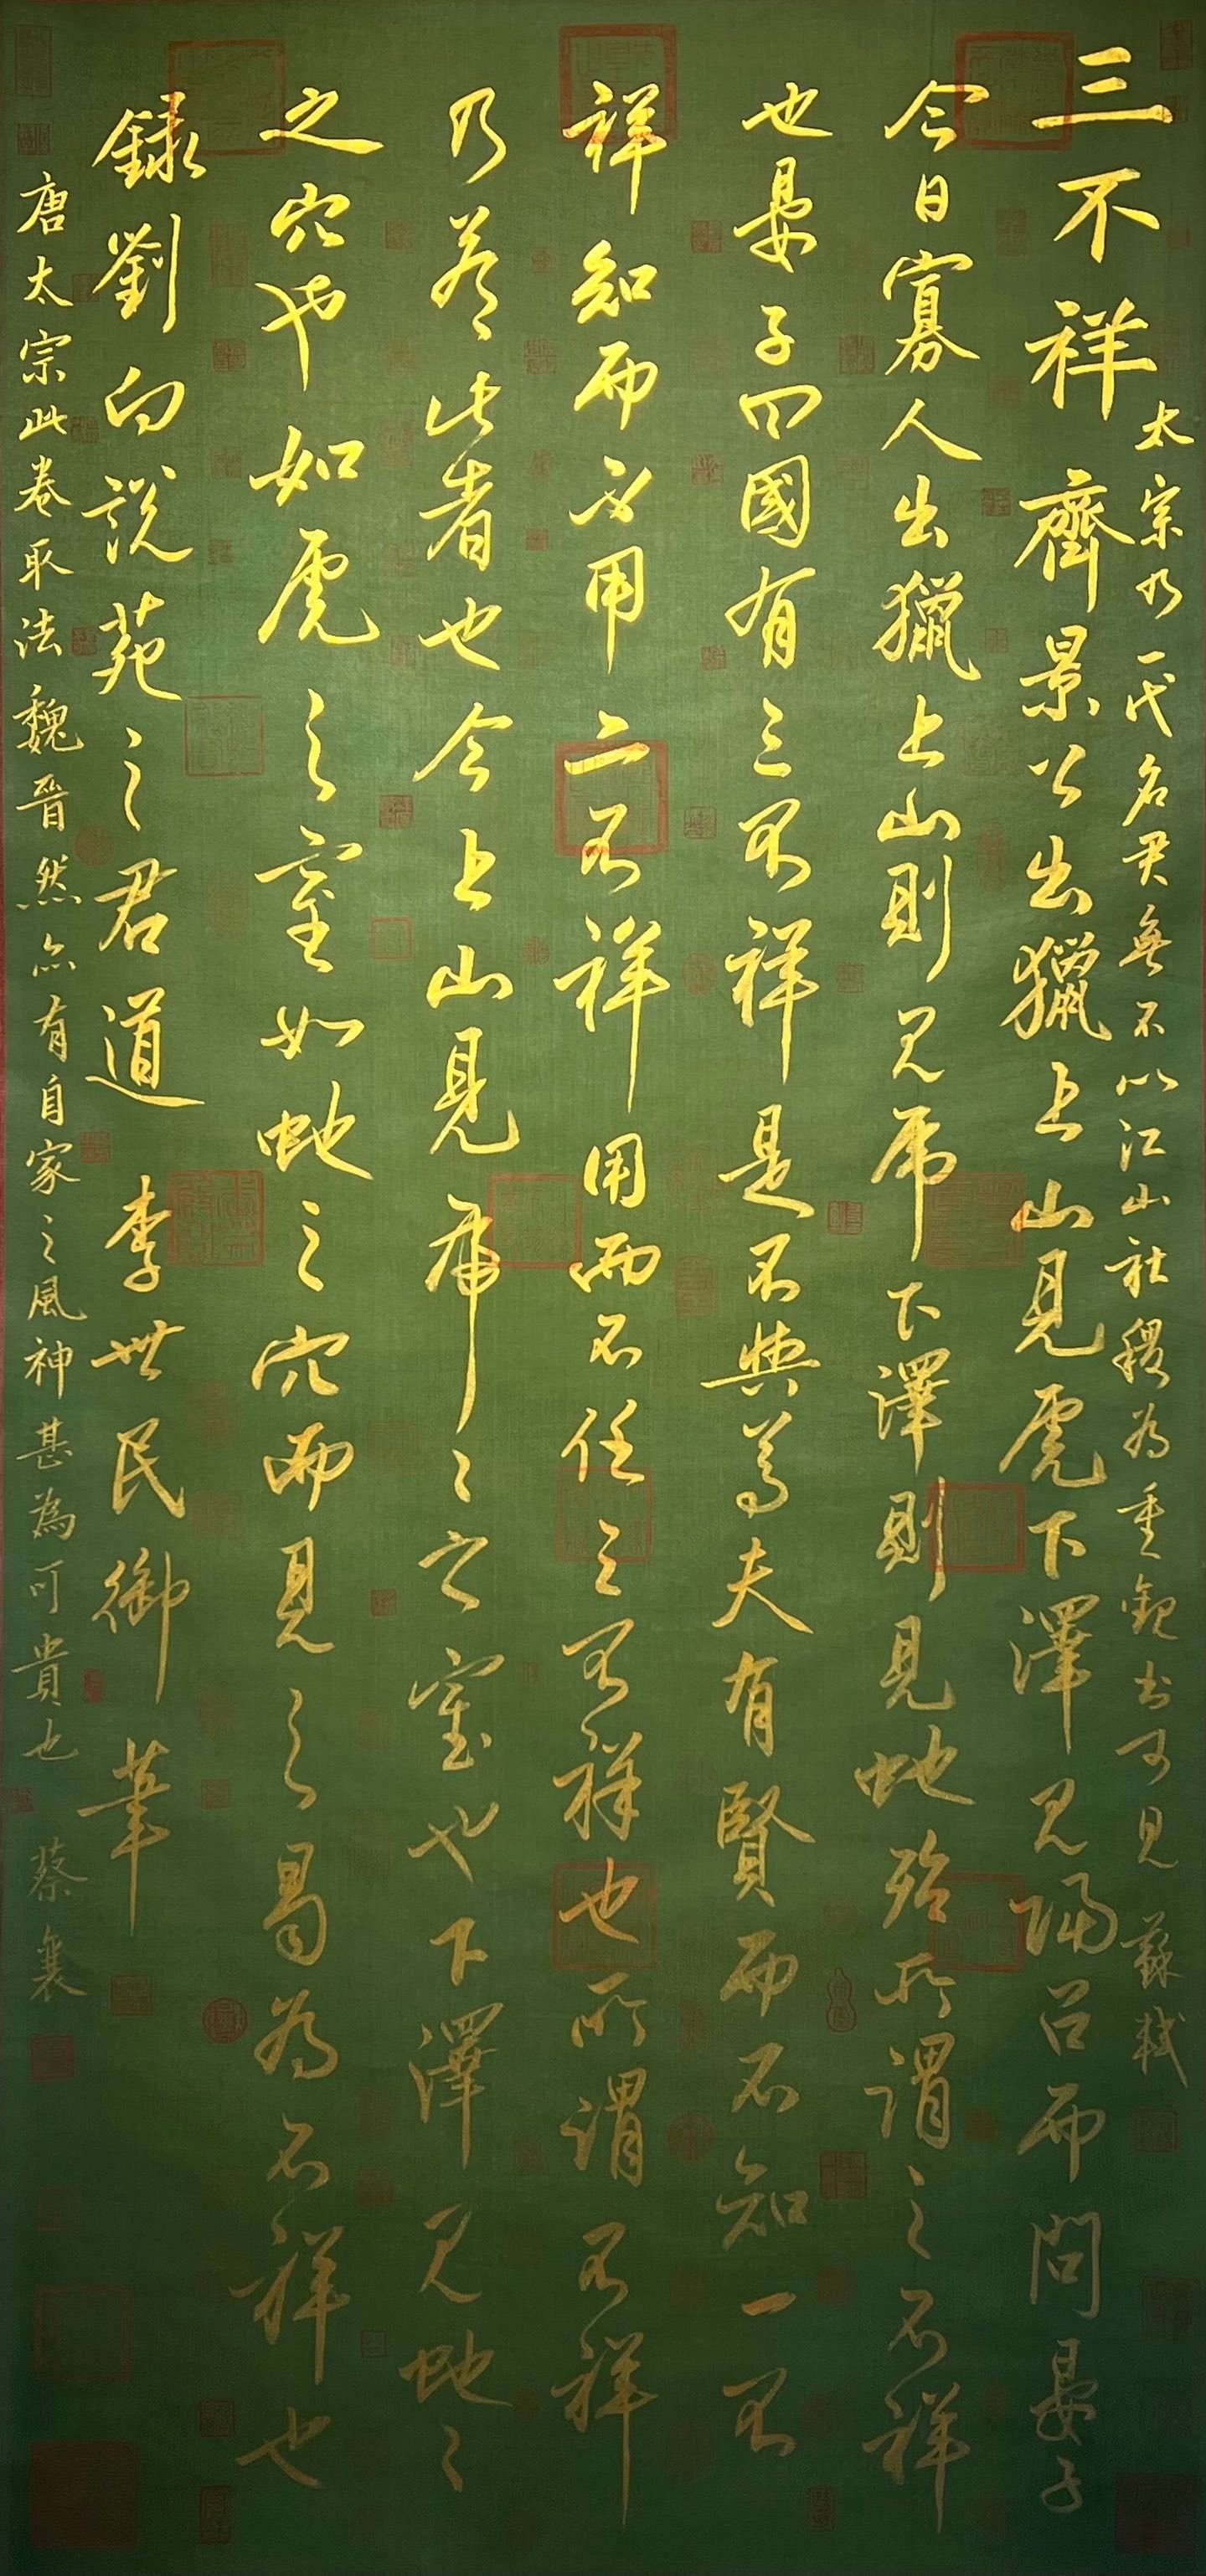 太宗乃一代名君無不以江山社稷為重觀書可見 蘇軾
三不祥 齊景公出獵上山見虎下澤見蛇歸召而問晏子
今日寡人出獵上山則見虎下澤則見蛇殆所謂之不祥
也晏子曰國有三不祥是不與焉夫有賢而不知一不
祥知而不用二不祥用而不任三不祥也所謂不祥
乃若此者也今上山見虎虎之室也下澤見蛇蛇
之穴也如虎之室如蛇之穴而見之曷為不祥也
錄劉向說苑之君道 李世民御筆
唐太宗此卷取法魏晉然亦有自家之風神甚為可貴也 蔡襄